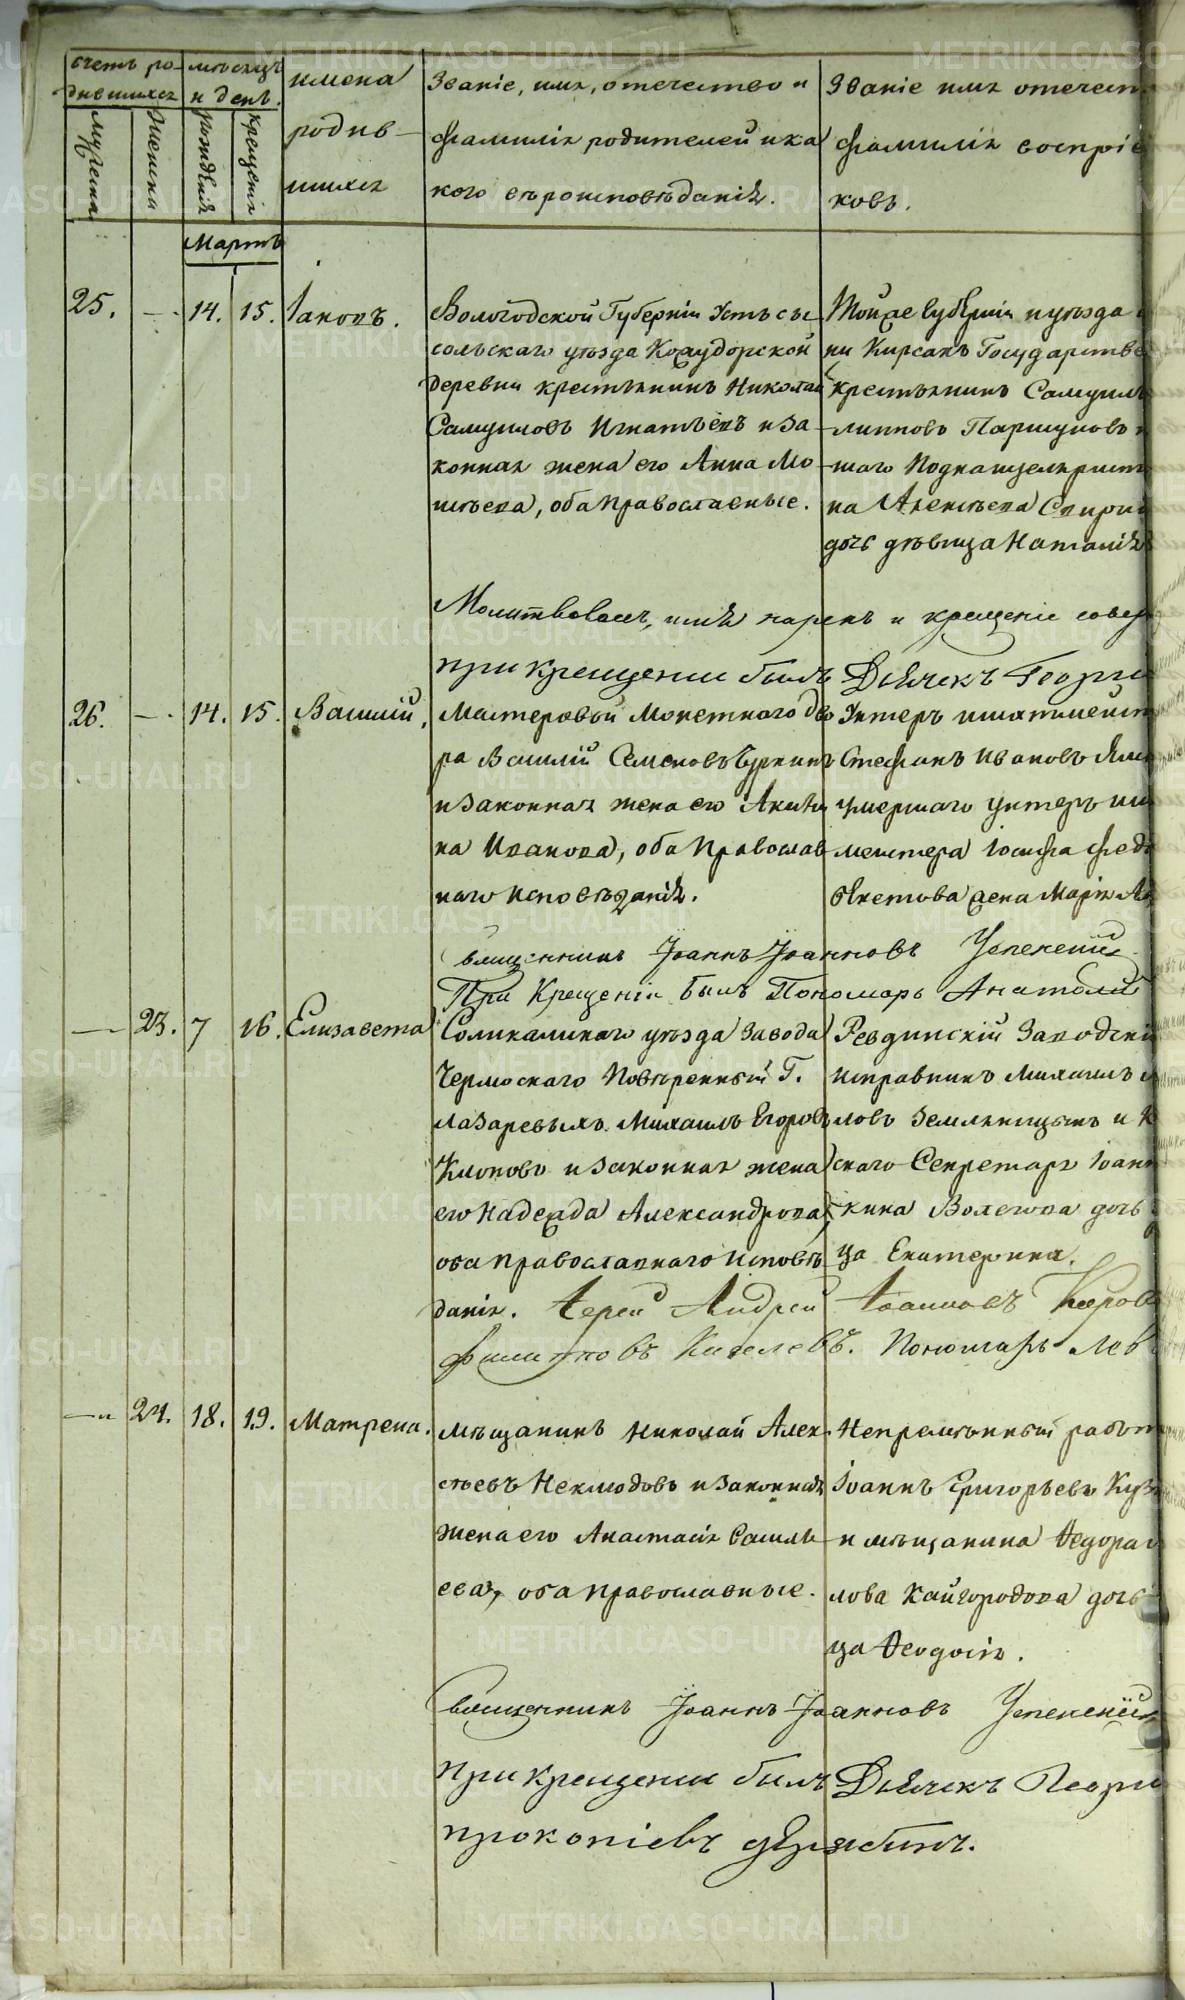 счетъ ро-
дившихся
мѣсяцъ
и день.
мужеска
женска
рожденія
крещенія
имена
родив-
шихся
Званіе, имя, отечество и
фамилія родителей и ка
кого вѣроисповѣданія.
Званіе имя отечест
фамилія воспріе
ковъ.
Мартъ
25. — 14. 15. Іаковъ.
Вологодской Губерніи Устьсы
сольскаго уѣзда
деревни крестьянинъ Николай
Самуиловъ Игнатьевъ и за
конная жена его Анна Мо
исѣева, оба православные.
Тойже Губерніи и уѣзда
ни Кирсакъ Государстве
крестьянинъ Самуилъ
липповъ Паршуковъ
шаго
на Алексѣева Спири
дочь дѣвица Наталія
Молитвовалъ, имя нарекъ и крещеніе совер
при крещеніи былъ Дьячекъ Георгі
26. — 14. 15. Василій,
Мастеровый Монетнаго дво
ра Василій Семеновъ
и законная жена его Акили
на Иванова, оба Православ
наго исповѣданія.
Унтеръ шихтмейст
Стефанъ Ивановъ
умершаго унтеръ ши
мейстера Іосифа Федо
жена Марія
священникъ Іоаннъ Іоанновъ Успенскій
При Крещеніи былъ Пономарь Анатолій
— 23. 7 16. Елизавета
Соликамскаго уѣзда завода
Чермоскаго Повѣренный Г.
Лазаревыхъ Михаилъ Егоровъ
Клоповъ и законная жена
его Надежда Александрова
оба православнаго исповѣ
данія.
Ревдинскій Заводскі
исправникъ Михаилъ
ловъ Земляницынъ и К
скаго Секретаря Іоан
кина Волегова дочь
ца Екатерина.
Іерей Андрей Іоанновъ
Филипповъ Киселевъ. Пономарь Лев
— 24. 18. 19. Матрена.
мѣщанинъ Николай Алек
сѣевъ Неклюдовъ и законная
жена его Анастасія Василь
ева, оба православные.
Непремѣнный работ
Іоаннъ Григорьевъ Куз
и мѣщанина Ѳедора
лова Кайгородова дочь
ца Ѳеодосія.
священникъ Іоаннъ Іоанновъ Успенскій
при крещеніи былъ Дьячекъ Георгі
прокопіевъ дерябинъ.
METRIKI.GASO-URAL.RU